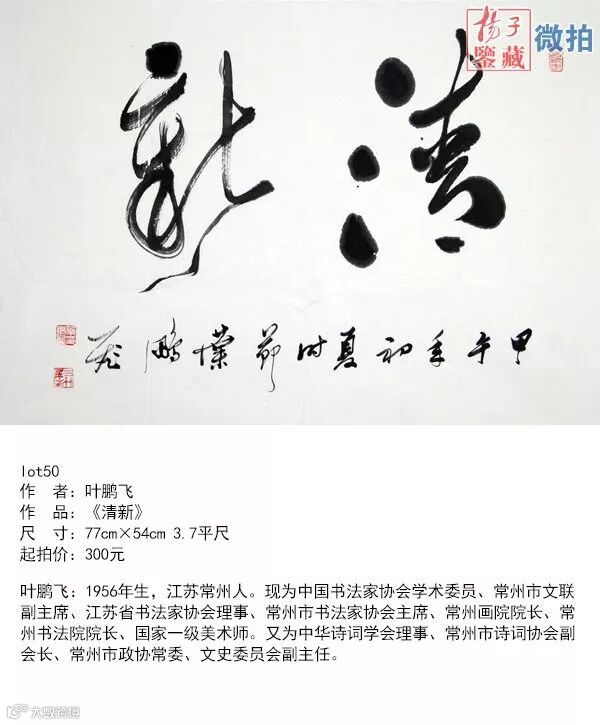 揚子
鑒藏
微拍
清新
甲午年初夏时节葉鵬飛
lot50
作　者：叶鹏飞
作　品：《清新》
尺　寸：77cm×54cm 3.7平尺
起拍价：300元
叶鹏飞：1956年生，江苏常州人。现为中国书法家协会学术委员、常州市文联
副主席、江苏省书法家协会理事、常州市书法家协会主席、常州画院院长、常
州书法院院长、国家一级美术师。又为中华诗词学会理事、常州市诗词协会副
会长、常州市政协常委、文史委员会副主任。
大数跨境